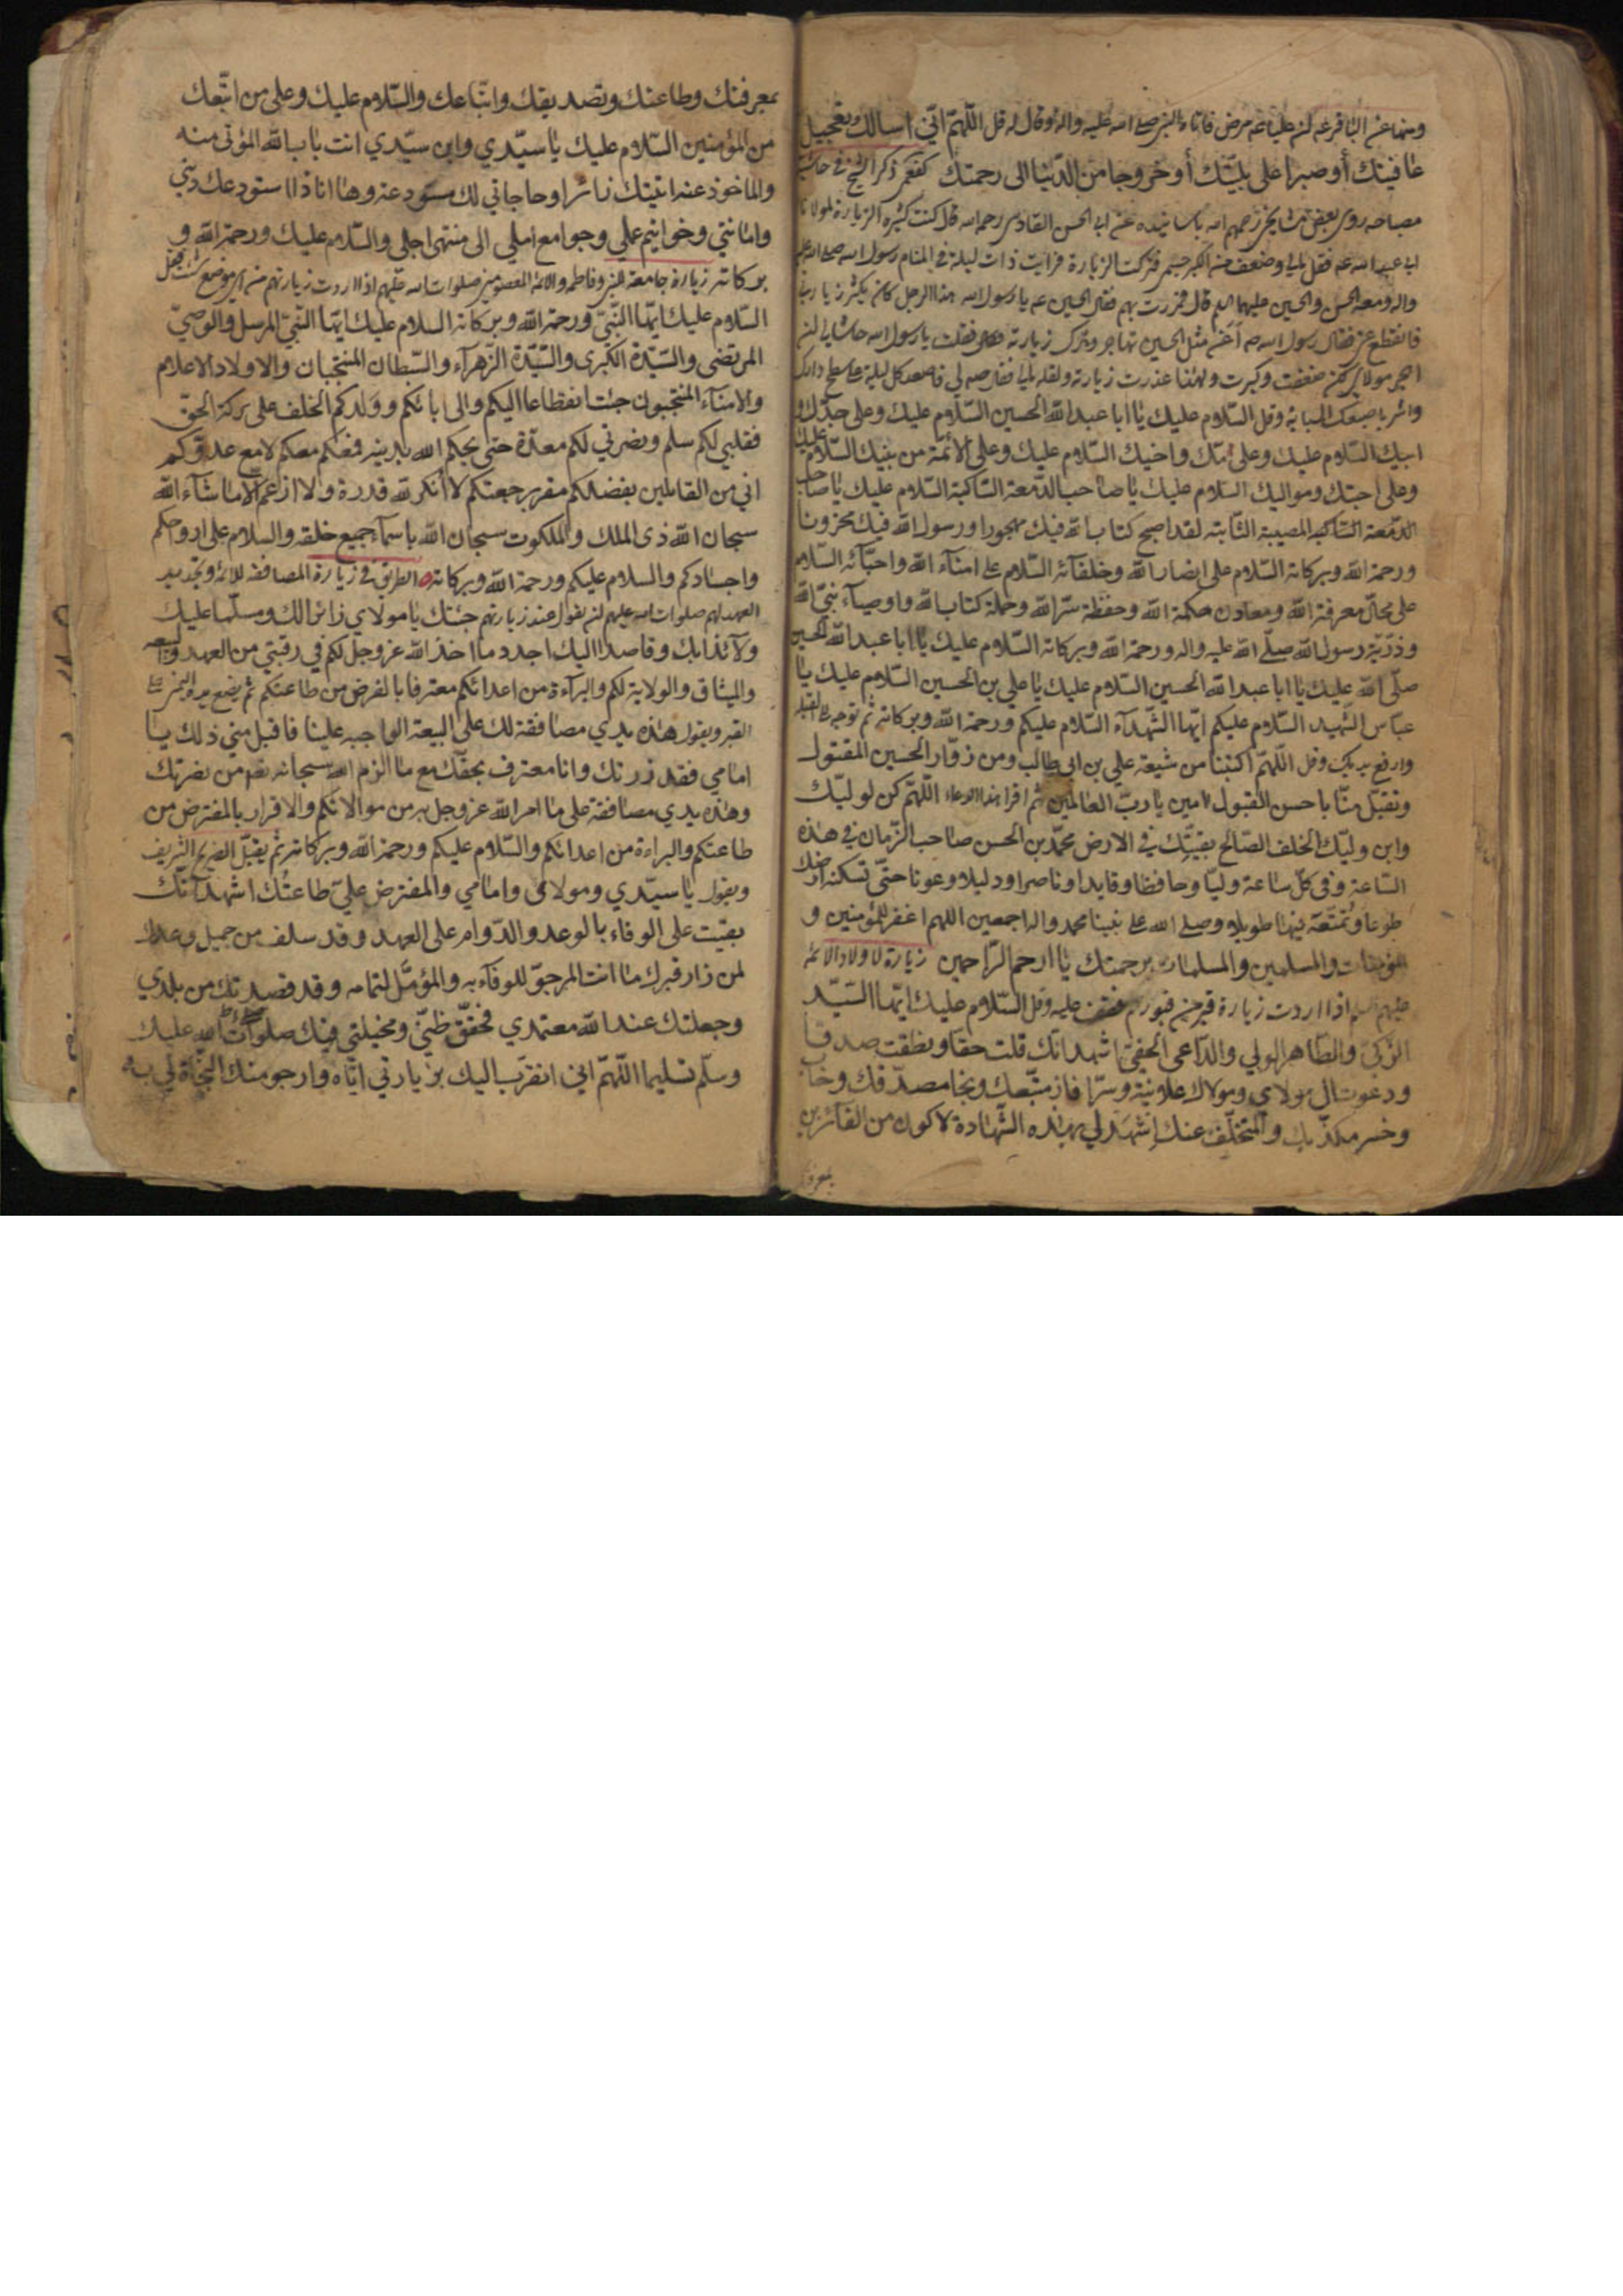 ومنها عن الباقر عه ان عليا عه مرض فاتاه النبي صلى الله عليه واله وقال له قل اللهم اني اسالك تعجيل
عافيتك أو صبرا على بليتك أو خروجا من الدنيا الى رحمتك كفعمي ذكر الشيخ في حاشية
مصباحه روى بعض مشايخي رحمهم الله باسانيده عن ابي الحسن الفادسي رحمه الله قال كنت كثير الزيارة لمولانا
ابي عبد الله عه فقل مالي وضعف من الكبر جسمي فتركت الزيارة فرايت ذات ليلة في المنام رسول الله صلى الله عليه
واله ومعه الحسن والحسين عليهما السلام قال فمررت بهم فقال الحسين عه يا رسول الله هذا الرجل كان يكثر زيارتي
فانقطع عني فقال رسول الله ص أعن مثل الحسين تهاجر وتترك زيارته فقلت يا رسول الله حاشا لي ان
اهجر مولاي لكن ضعفت وكبرت ولهذا عذرت زيارته ولقلة مالي فقال اصعد كل ليلة على سطح دارك
واشر باصبعك السبابة وقل السلام عليك يا ابا عبد الله الحسين السلام عليك وعلى جدك و
ابيك السلام عليك وعلى امك واخيك السلام عليك وعلى الأئمة من بنيك السلام عليك
وعلى احبتك ومواليك السلام عليك يا صاحب الدمعة الساكبة السلام عليك يا صاحب
الدمعة الساكبة المصيبة الثابتة لقد اصبح كتاب الله فيك مهجورا ورسول الله فيك محزونا
ورحمة الله وبركاته السلام على انصار الله وخلفآئه السلام على امنآء الله واحبآئه السلام
على محال معرفة الله ومعادن حكمة الله وحفظة سر الله وحملة كتاب الله واوصيآء نبي الله
وذرية رسول الله صلى الله عليه واله ورحمة الله وبركاته السلام عليك يا ابا عبد الله الحسين
صلى الله عليك يا ابا عبد الله الحسين السلام عليك يا علي بن الحسين السلام عليك يا
عباس الشهيد السلام عليكم ايها الشهدآء السلام عليكم ورحمة الله وبركاته ثم توجه الى القبلة
وارفع يديك وقل اللهم اكتبنا من شيعة علي بن ابي طالب ومن زوار الحسين المقتول
وتقبل منا باحسن القبول امين يا رب العالمين ثم اقرا هذا الدعاء اللهم كن لوليك
وابن وليك الخلف الصالح بقيتك في الارض محمد بن الحسن صاحب الزمان في هذه
الساعة وفي كل ساعة وليا وحافظا وقايدا وناصرا ودليلا وعونا حتى تسكنه ارضك
طوعا وتمتعه فيها طويلا وصلى الله على نبينا محمد واله اجمعين اللهم اغفر للمؤمنين و
المؤمنات والمسلمين والمسلمات برحمتك يا ارحم الراحمين زيارة لاولاد الائمة
عليهم السلم اذا اردت زيارة قبر من قبورهم فقف عليه وقل السلام عليك ايها السيد
الزكي والطاهر الولي والداعي الحفي اشهد انك قلت حقا ونطقت صدقا
ودعوت الى مولاي ومولاك علانية وسرا فاز متبعك ونجا مصدقك وخاب
وخسر مكذبك والمتخلف عنك إشهد لي بهذه الشهادة لاكون من الفآئزين
بمعرفتك
بمعرفتك وطاعتك وتصديقك واتباعك والسلام عليك وعلى من اتبعك
من المؤمنين السلام عليك يا سيدي وابن سيدي انت باب الله المؤتى منه
والماخوذ عنه اتيتك زائرا وحاجاتي لك مستودعة وها انا ذا استودعك ديني
وامانتي وخواتيم عملي وجوامع املي الى منتهى اجلي والسلام عليك ورحمة الله و
بركاته زيارة جامعة للنبي وفاطمه والائمة المعصومين صلوات الله عليهم اذا اردت زيارتهم من اي موضع كنت فقل
السلام عليك ايها النبي ورحمة الله وبركاته السلام عليك ايها النبي المرسل والوصي
المرتضى والسيدة الكبرى والسيدة الزهرآء والسبطان المنتجبان والاولاد الاعلام
والامنآء المنتجبون جئت انقطاعا اليكم والى ابائكم وولدكم الخلف على بركة الحق
فقلبي لكم سلم ونصرتي لكم معدة حتى يحكم الله بدينه فمعكم معكم لا مع عدوكم
اني من القائلين بفضلكم مقر برجعتكم لا أنكر لله قدرة ولا ازعم الا ما شآء الله
سبحان الله ذي الملك والملكوت سبحان الله باسمآء جميع خلقه والسلام على ارواحكم
واجسادكم والسلام عليكم ورحمة الله وبركاته الطريق في زيارة المصافقة للائمة وتجديد
العهد لهم صلوات الله عليهم ان يقول عند زيارتهم جئتك يا مولاي زائرا لك ومسلما عليك
ولآئذا بك وقاصدا اليك اجدد ما اخذ الله عز وجل لكم في رقبتي من العهد والبيعة
والميثاق والولاية لكم والبرآءة من اعدائكم معترفا بالفرض من طاعتكم ثم يضع يده اليمنى على
القبر ويقول هذه يدي مصافقة لك على البيعة الواجبه علينا فاقبل مني ذلك يا
امامي فقد زرتك وانا معترف بحقك مع ما الزم الله سبحانه من نصرتك
وهذه يدي مصافقة على ما امر الله عز وجل به من موالاتكم والاقرار بالمفترض من
طاعتكم والبراءة من اعدائكم والسلام عليكم ورحمة الله وبركاته ثم يقبل الضريح الشريف
ويقول يا سيدي ومولاى وامامي والمفترض علي طاعتُك اشهد انك
بقيت على الوفاء بالوعد والدوام على العهد وقد سلف من جميل وعدك
لمن زار قبرك ما انت المرجو للوفآء به والمؤمَّل لتمامه وقد قصدتك من بلدي
وجعلتك عند الله معتمدي فحقق ظني ومخيلتي فيك صلوات الله عليك
وسلم تسليما اللهم اني اتقرب اليك بزيارتي اياه وارجو منك النجاة لي به